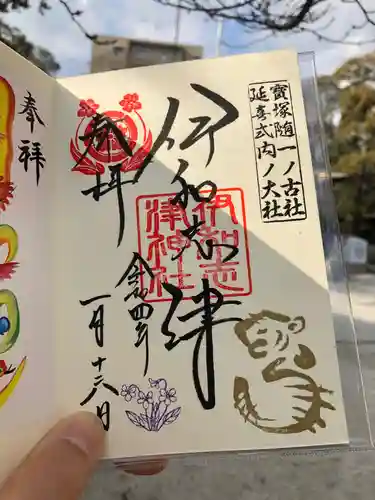 寶塚随一ノ古社
延喜式内ノ大社
伊和志津
伊和志
津神社
奉拝
令和四年
一月十六日
奉拝